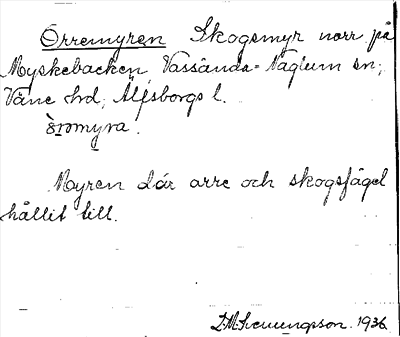 Orremyren Skogsmyr norr på
Myskebacken, Vassända-Naglum sn;
Väne hd, Älfsborgs l.
òromyra.
Myren där orre och skogsfågel
hållit till.
D.M. Svenungsson. 1936